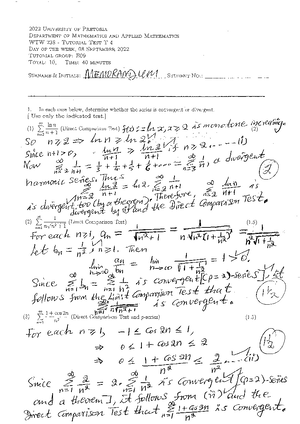 2022 University of Pretoria
Department of Mathematics and Applied Mathematics
WTW 218 - Tutorial Test Y 4
Day of the week, 08 September, 2022
Tutorial Group: B09
Total: 10, Time: 40 minutes
Surname & Initials: MEMORANDUM Student No.:
1. In each case below, determine whether the series is convergent or divergent
[ Use only the indicated test.]
(1) ∑ ln n / n+1 (Direct Comparison Test) f(x) = ln x, x ≥ 2 is monotone increasing. (2)
So n ≥ 2 ⇒ ln n ≥ ln 2
Since n+1 > 0, ln n / n+1 ≥ ln 2 / n+1
Now ∑ 1/n+1 = a divergent
harmonic series. Thus
∑ ln 2 / n+1 = ln 2 · ∑ 1/n+1 is
is divergent too (by a theorem). Therefore, ∑ ln n / n+1 is
divergent by the Direct Comparison Test.
(Direct Comparison Test) (1.5)
For each n ≥ 1, aₙ =
let bₙ = 1/n², n ≥ 1. Then
lim aₙ/bₙ = lim = 1 > 0.
Since ∑ bₙ = ∑ 1/n² is convergent (p=2)-series, it
follows from the Limit Comparison Test that
is convergent.
(3) ∑ 1+cos 2n / n² (Direct Comparison Test and p-series) (1.5)
For each n ≥ 1, -1 ≤ cos 2n ≤ 1,
⇒ 0 ≤ 1 + cos 2n ≤ 2
⇒ 0 ≤ 1 + cos 2n / n² ≤ 2/n² ...(ii)
Since ∑ 2/n² = 2·∑ 1/n² is convergent [(p=2)-series
and a theorem], it follows from (ii) and the
Direct Comparison Test that ∑ 1+cos 2n / n² is convergent.